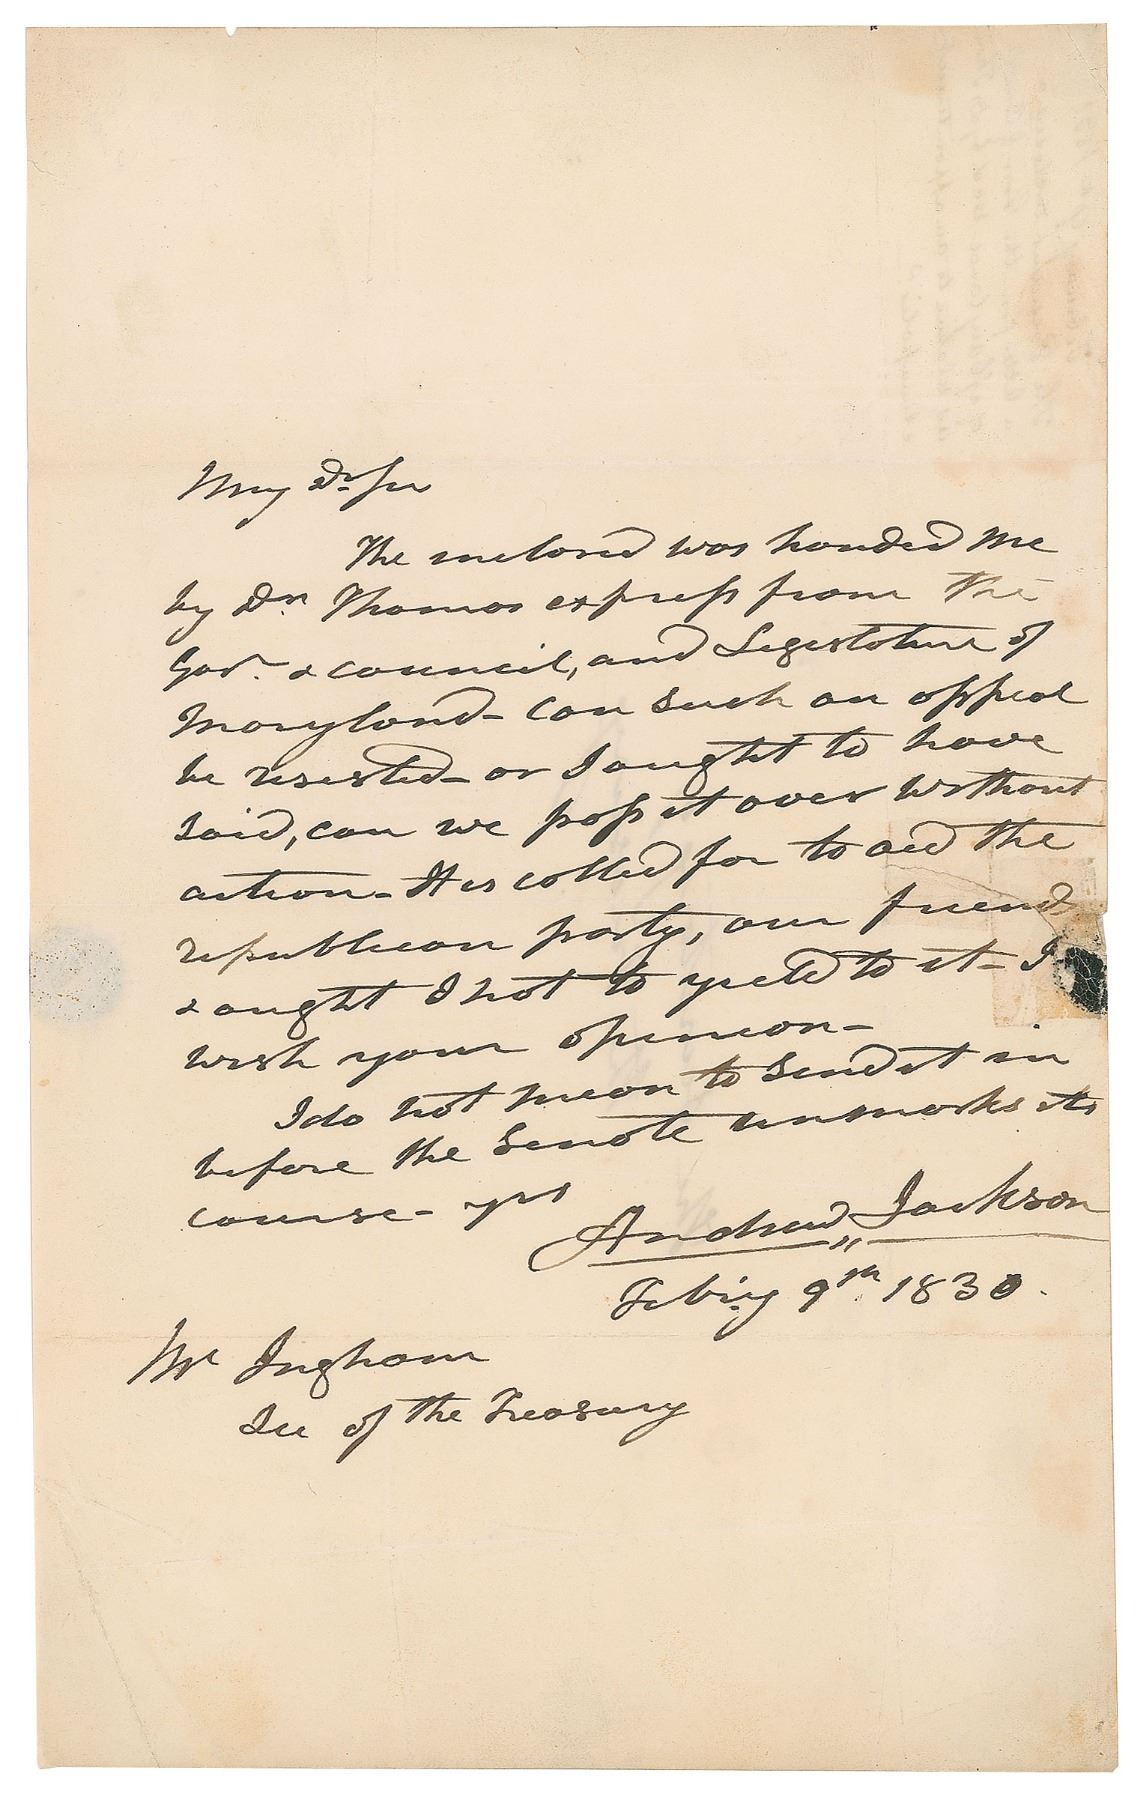 My Dr Sir
The inclosed was handed me
by Dr. Thomas express from the
Govr. & council, and Legislature of
Maryland – Can such an appeal
be resisted – or I aught to have
said, can we pass it over without
action – It is called for to aid the
republican party, our friends
& aught I not to yield to it – I
wish your opinion –
I do not mean to send it in
before the Senate unmarks its
course – yrs
Andrew Jackson
Febry 9th 1830.
Mr Ingham
Sec of the Treasury